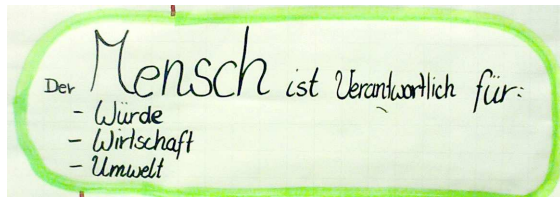 Der Mensch ist Verantwortlich für:
- Würde
- Wirtschaft
- Umwelt